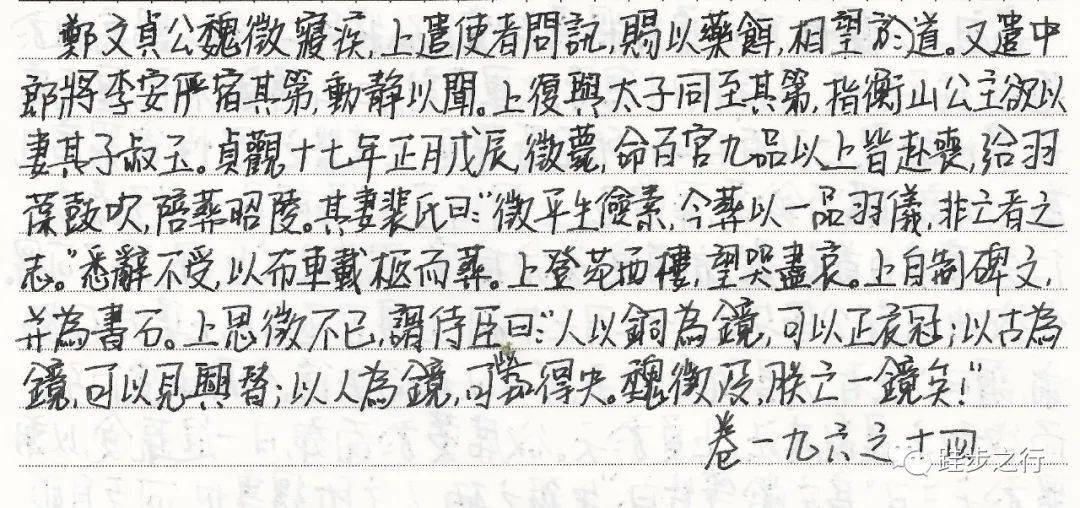 鄭文貞公魏徵寢疾,上遣使者問訊,賜以藥餌,相望於道。又遣中
郎將李安儼宿其第,動靜以聞。上復與太子同至其第,指衡山公主欲以
妻其子叔玉。貞觀十七年正月戊辰,徵薨,命百官九品以上皆赴喪,給羽
葆鼓吹,陪葬昭陵。其妻裴氏曰:“徵平生儉素,今葬以一品羽儀,非亡者之
志。”悉辭不受,以布車載柩而葬。上登苑西樓,望哭盡哀。上自制碑文,
并為書石。上思徵不已,謂侍臣曰:“人以銅為鏡,可以正衣冠;以古為
鏡,可以見興替;以人為鏡,可知得失。魏徵沒,朕亡一鏡矣!”
卷一九六之十四
跬步之行